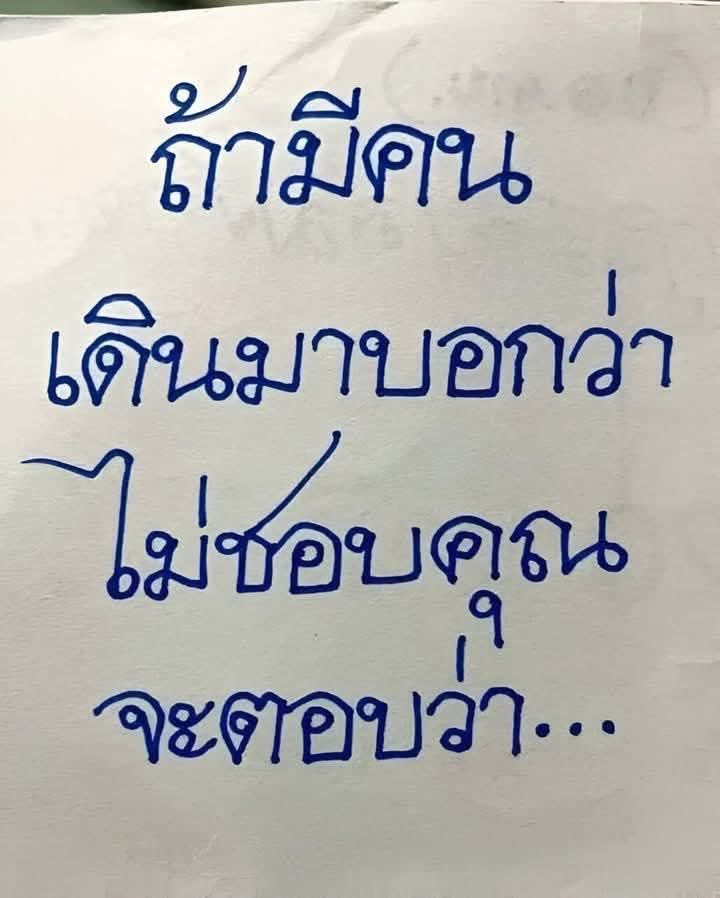 ถ้ามีคน
เดินมาบอกว่า
ไม่ชอบคุณ
จะตอบว่า...